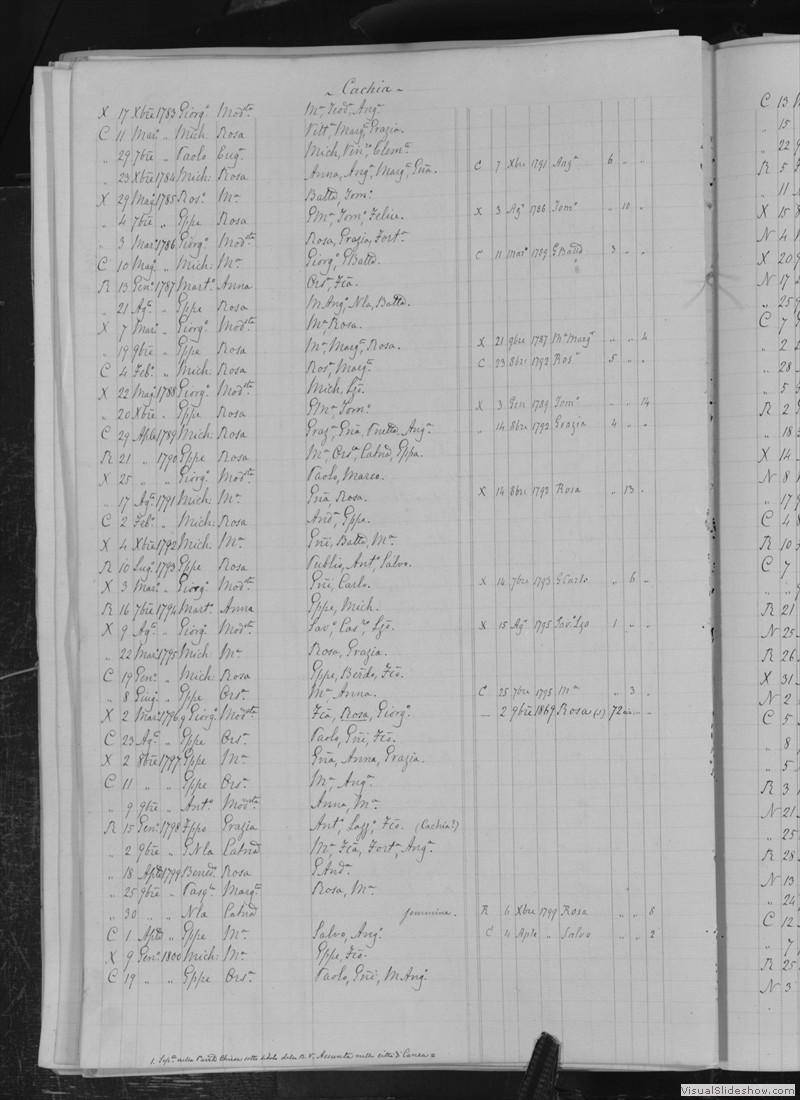 ~ Cachia ~
X 17 Xbre 1783 Giorgo. Modta. Ma, Teoda, Anga.
C 11 Maro. „ Mich: Rosa Vitta, Marga, Grazia.
„ 29 7bre „ Paolo Euga. Mich, Vinco, Clema.
„ 23 Xbre 1784 Mich: Rosa Anna, Anga, Marga, Gna. C 7 Xbre 1791 Anga 6 „ „
X 29 Mago 1785 Roso. Ma. Batta, Toma.
„ 4 7bre „ Gppe Rosa GMa, Toma, Felice. X 3 Ago 1786 Toma „ 10 „
„ 3 Maro. 1786 Giorgo. Modta. Rosa, Grazia, Forta.
C 10 Mago. „ Mich: Ma. Giorgo, GBatta. C 11 Maro 1789 GBatta 3 „ „
R 13 Genn: 1787 Marto. Anna Orsa, Fca.
„ 21 Ago. „ Gppe Rosa MAnga, Nla, Batta.
X 7 Maro. „ Giorgo. Modta. Ma, Rosa.
„ 19 9bre „ Gppe Rosa Ma, Marga, Rosa. X 21 9bre 1787 Ma Marga „ „ 4
C 4 Febo. „ Mich: Rosa Rosa, Marga. C 23 8bre 1792 Rosa 5 „ „
X 22 Mago 1788 Giorgo. Modta. Mich, Lzo.
„ 20 Xbre „ Gppe Rosa GMa, Toma. X 3 Gen 1789 Toma „ „ 14
C 29 Aple 1789 Mich: Rosa Graza, Gna, Vnetta, Anga. „ 14 8bre 1792 Grazia 4 „ „
R 21 „ 1790 Gppe Rosa Ma, Orsa, Catna, Gppa.
X 25 „ „ Giorgo. Modta. Paolo, Marco.
„ 17 Ago. 1791 Mich: Ma. Gna, Rosa. X 14 8bre 1792 Rosa „ 13 „
C 2 Febo. „ Mich: Rosa Anda, Gppa.
X 4 Xbre 1792 Mich Ma. Gni, Batta, Ma.
R 10 Lugo. 1793 Gppe Rosa Publio, Anto, Salvo.
X 3 Maro. „ Giorgo. Modta. Gni, Carlo. X 14 7bre 1793 GCarlo „ 6 „
R 16 7bre 1794 Marto. Anna Gppe, Mich.
X 9 Ago. „ Giorgo. Modta. Savo, Caso, Lzo. X 15 Ago 1795 Savo Lzo 1 „ „
„ 22 Maro. 1795 Mich Ma. Rosa, Grazia.
C 19 Genn: „ Mich: Rosa Gppe, Bendo, Fco.
„ 8 Giugo. „ Gppe Orsa. Ma, Anna. C 25 7bre 1795 Ma „ 3 „
X 2 Maro. 1796 Giorgo. Modta. Fca, Rosa, Giorga. — 2 9bre 1869 Rosa (1) 72 an: — —
C 23 Ago. „ Gppe Orsa. Paolo, Gni, Fco.
X 2 8bre 1797 Gppe Ma. Gna, Anna, Grazia.
C 11 „ „ Gppe Orsa. Ma, Anga.
„ 9 9bre „ Anto. Modta. Anna, Ma.
R 15 Gen: 1798 Fppo Grazia Anto, Fco. (Cachia?)
„ 2 9bre „ GNla Catna Ma, Fca, Forta, Anga.
„ 18 Aple 1799 Bened: Rosa GAnda.
„ 25 9bre „ Pasqe. Marga. Rosa, Ma.
„ 30 „ „ Nla Catna femmina. R 6 Xbre 1799 Rosa „ „ 8
C 1 Aple „ Gppe Ma. Salvo, Anga. C 4 Aple „ Salvo „ „ 2
X 9 Genn: 1800 Mich: Ma. Gppe, Fco.
C 19 „ „ Gppe Orsa. Paolo, Gni, MAnga.
1. Sepa. nella Parrle Chiesa sotto titolo della B. V. Assunta nella città di Canea =
C 13
„ 15
„ 22
R 5
„ 11
X 15
N 4
X 20
N 17
„ 25
C 7
„ 2
„ 28
„ 5
R 2
„ 18
X 14
N 8
„ 17
C 4
R 10
C 7
R 21
N 25
R 26
X 31
N 2
C 5
„ 8
„ 5
R 3
N 21
„ 25
R 28
N 13
„ 24
C 12
„ 7
R 25
N 3
VisualSlideshow.com